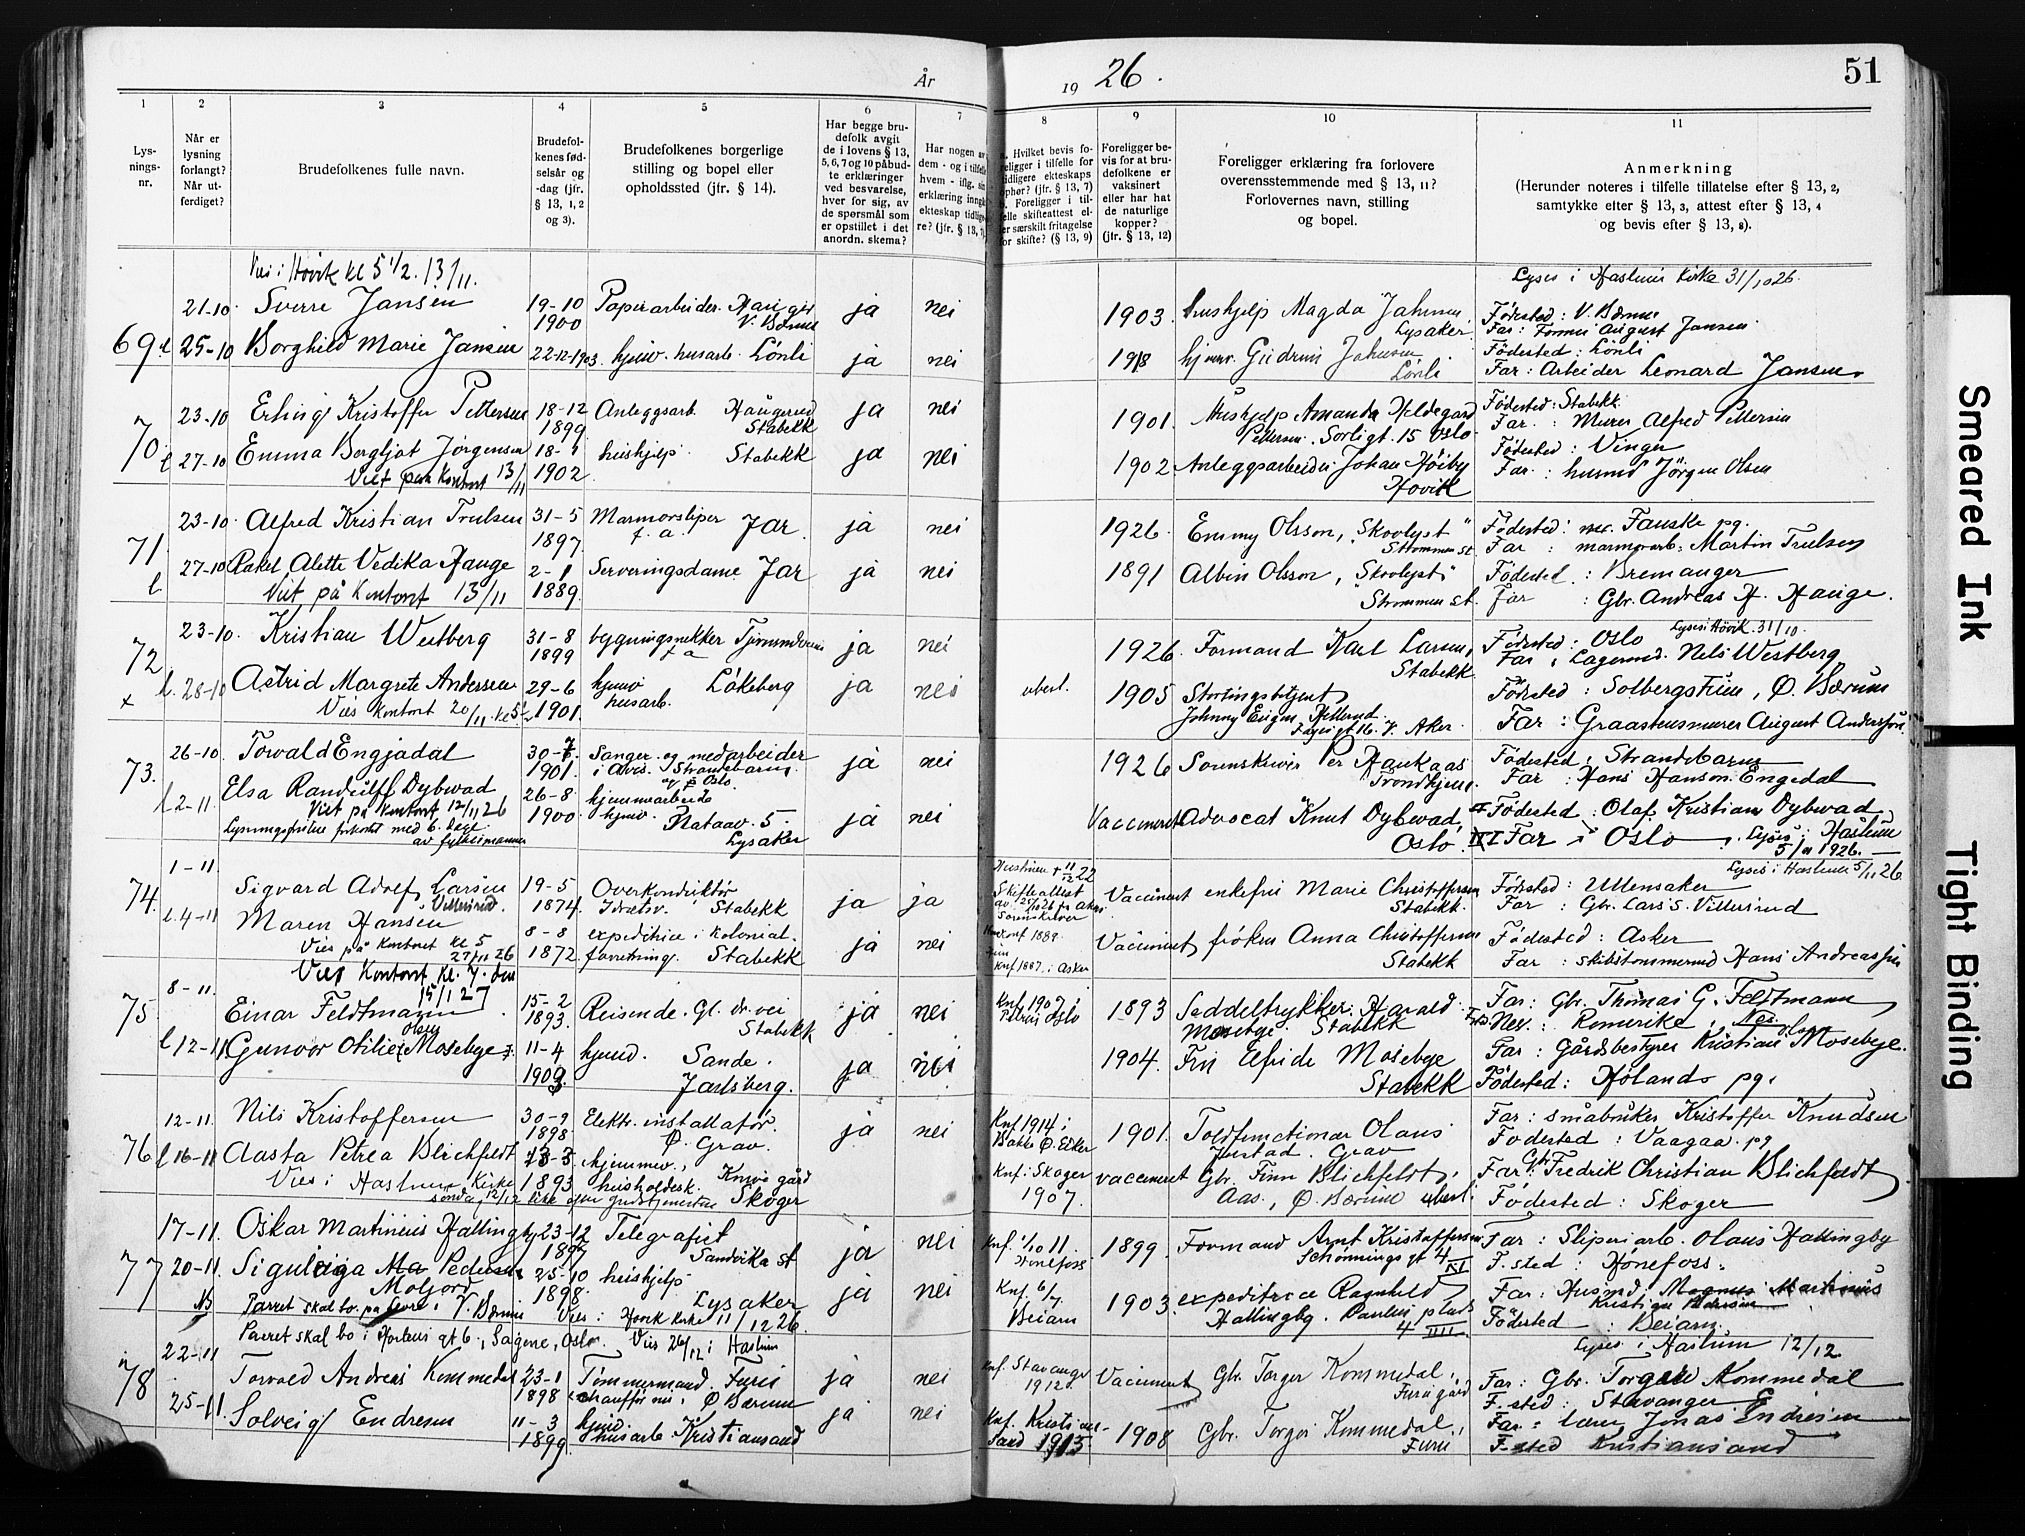 År 19 26.
51
1 2 3 4 5 6 7 8 9 10 11
Lys-
nings-
nr.
Når er
lysning
forlangt?
Når ut-
ferdiget?
Brudefolkenes fulle navn.
Brudefol-
kenes fød-
selsår og
-dag (jfr.
§ 13, 1, 2
og 3).
Brudefolkenes borgerlige
stilling og bopel eller
opholdssted (jfr. § 14).
Har begge bru-
defolk avgit
de i lovens § 13,
5, 6, 7 og 10 påbud-
te erklæringer
ved besvarelse,
hver for sig, av
de spørsmål som
er opstillet i det
anordn. skema?
Har nogen av
dem - og i tilfelle
hvem - iflg. sin
erklæring inngått
ekteskap tidlige-
re? (jfr. § 13, 7)
a. Hvilket bevis fo-
religger i tilfelle for
tidligere ekteskaps
ophør? (jfr. § 13, 7)
b. Foreligger i til-
felle skifteattest el-
ler særskilt fritagelse
for skifte? (§ 13, 9)
Foreligger be-
vis for at bru-
defolkene er
vaksinert
eller har hat
de naturlige
kopper?
(jfr. § 13, 12)
Foreligger erklæring fra forlovere
overensstemmende med § 13, 11?
Forlovernes navn, stilling
og bopel.
Anmerkning
(Herunder noteres i tilfelle tillatelse efter § 13, 2,
samtykke efter § 13, 3, attest efter § 13, 4
og bevis efter § 13, 8).
Vies i Høvik kl 5 1/2. 13/11.
Lyses i Haslum Kirke 31/10 26.
21-10. Sverre Jansen 19-10 1900 Papirarbeider. V. Bærum ja nei 1903 hushjelp Magda Lysaker Fødested: V. Bærum
Far: Former August Jansen
69 l 25-10 Borghild Marie Jansen 22-12-1903 hjemv. husarb. Lönli ja nei 1918 hjemv. Gudrun Lönli Födested: Lönli
Far: Arbeider Leonard Jansen.
23-10 Erling Kristoffer Pettersen 18-12 1899 Anleggsarb. Haugerud Stabekk ja nei 1901. Hushjelp Amanda Hildegard
Pettersen. Sorligt. 15 Oslo. Födested: Stabekk
Far: Murer Alfred Pettersen
70 l 27-10 Emma Borgljot Jørgensen 18-1 1902 hushjelp. Stabekk ja nei 1902 Anleggsarbeider Johan Høiby
Høvik Fødested: Vinger
Far: husmd Jørgen Olsen
Viet på Kontoret 13/11
23-10. Alfred Kristian Trulsen 31-5 1897 Marmorsliper f.a. Jar. ja nei 1926. Emmy Olsson, "Skovlyst"
Strømmen st Födested: Fauske pg.
Far: marmorarb. Martin Trulsen
71 l 27-10 Rakel Alette Vedika Hauge 2-1 1889. Serveringsdame Jar ja nei 1891 Albin Olsson, "Skovlyst"
Strømmen st. Fødested: Bremanger
Far: Gbr. Andreas H. Hauge.
Viet på Kontoret 13/11
23-10. Kristian Westberg 31-8 1899 bygningssnekker f a ja nei 1926. Formand Karl Larsen,
Stabekk Fødested: Oslo Lyses i Høvik. 31/10.
Far: Lagermd. Nils Westberg
72 x l. 28-10 Astrid Margrete Andersen 29-6 1901. hjemv husarb. Løkeberg ja nei uberl. 1905 Stortingsbetjent
Johnny Eugen Fødested: Solbergstuen, Ø. Bærum
Far: Graastensmurer August Andersson
Vies kontoret 20/11. kl 5 1/2
26-10. Torvald Engjadal 30-7 1901. Sanger og medarbeider
i Aves. Strandebarm
og i Oslo. ja nei 1926 Sorenskriver Per Haukaas
Trondhjem. Fødested: Strandebarm
Far: Hans Hanson Engedal
73. l 2-11. Elsa Randulff Dybwad 26-8 1900 hjemmearbeide
hjemv. Plataav. 5.
Lysaker ja nei Vaccineret Advocat Knut Dybwad,
Oslo. II Fødested: Olaf Kristian Dybwad
I Far Oslo. Lyses i Haslum
5/11 1926.
Viet på kontoret 12/11 26
Lysningsfristen forkortet med 6. dage
av fylkesmannen
Lyses i Haslum 5/11 26.
1-11 Sigvard Adolf Larsen
Villersrud 19-5 1874. Overkonduktør
Idrætsv. Stabekk ja ja Hustruen + 11/12 22
Skifteattest
av 25/10 26 fr Aker
Sorenskriver Vaccineret enkefru Marie Christoffersen
Stabekk. Fødested: Ullensaker
Far: Gbr. Lars S. Villersrud
74. l. 4-11 Maren Hansen 8-8 1872. expeditrice i kolonial-
forretning. Stabekk ja nei konf 1889.
knf 1887. i Asker Vaccineret frøken Anna Christoffersen
Stabekk Fødested: Asker
Far: Skibstømmermd Hans Andreassen
Vies på Kontoret kl. 5
27/11 26
Vies Kontoret kl. 7. den
15/1 27
8-11. Einar Feldtmann 15-2 1893. Reisende. Gl. dr. vei
Stabekk ja nei Knf. 1907 i
Petrus Oslo 1893 Seddeltrykker Harald
Mosebye. Stabekk Far: Gbr. Thomas G. Feldtmann
Fsd. Nes. Romerike, Nes.
75 l 12-11 Gunvor Otilie Olsen Mosebye 11-4 1903. hjemv. Sande.
Jarlsberg. ja nei 1904. Frk Elfride Mosebye
Stabekk Far: Gårdsbestyrer Kristian Olsen Mosebye.
Födested: Hølands pg.
12-11. Nils Kristoffersen 30-9 1898. Elektr. installatør.
Ø. Grav. ja nei Knf 1914 i
Bakke Ø. Eiker 1901. Toldfunctionær Olaus
Justad. Grav Far: småbruker Kristoffer Knudsen
Fødested: Vaagaa. pg
76 l 16-11 Aasta Petrea Blichfeldt 23-3 1893 hjemmev.,
husholdersk. Knive gård
Skoger Knf. i Skoger
1907. vaccineret Gbr. Finn Blichfeldt,
Aas., Ø. Bærum uberl. Far: Gbr. Fredrik Christian Blichfeldt
Födested: Skoger
Vies i Haslum Kirke
søndag 12/12 like efter gudstjenesten
17-11. Oskar Martinius Hallingby 23-12 1897 Telegrafist
Sandvika st ja nei Knf. 1/10 11
Hønefoss 1899. Formand Arnt Kristoffersen
Schønnings gt 4 Far: Sliperiarb. Olaus Hallingby
F.sted: Hønefoss.
77 20-11. Siguleiga Ma Pedersen
Moljord 25-10 1898. hushjelp
Lysaker ja nei Knf. 6/7
Beiarn 1903. expeditrice Ragnhild
Hallingby. Paulus plads
4 IIII Far: Husmd. Magnus Martinius
Kristian Pedersen
Födested: Beiarn.
NB Parret skal bo på V. Bærum Vies i Høvik kirke 11/12 26.
Parret skal bo i gt 6, Sagene, Oslo. Vies 26/12 i Haslum
Lyses i Haslum 12/12
22-11 Torvald Andreas Kommedal 23-1 1898 Tømmermand. Furu
chauffør nu, Ø Bærum ja nei knf. Stavanger
1912. Vaccineret Gbr. Torger Kommedal,
Furu gård Far: Gbr. Torger Kommedal
F.sted: Stavanger
78 25-11. Solveig Endresen 11-3 1899. hjemv.
husarb. Kristiansand ja. nei Knf. Kristian-
sand 1913 1908 Gbr. Torger Kommedal,
Furu Far: lærer Jonas Endresen
F.sted Kristiansand
Smeared Ink
Tight Binding